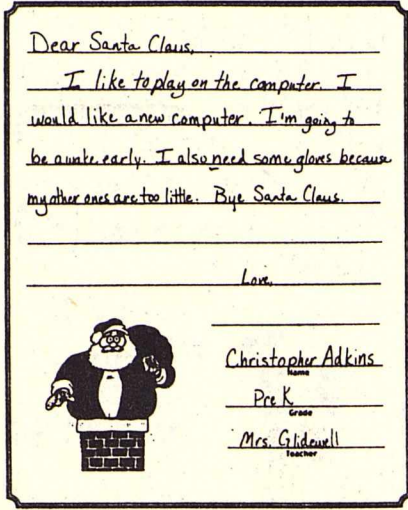 Dear Santa Claus,
I like to play on the computer. I
would like a new computer. I'm going to
be awake early. I also need some gloves because
my other ones are too little. Bye Santa Claus.
Love,
Christopher Adkins
Name
Pre K
Grade
Mrs. Glidewell
Teacher